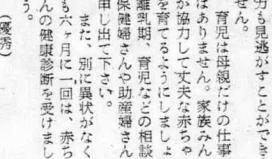 労も見逃がすことができ
せん。
育児は母親だけの仕事
はありません。家族みん
が協力して丈夫な赤ちゃ
を育てるようにしましょ
離乳期、育児などの相談
保健婦さんや助産婦さん
申し出て下さい。
また、別に異状がなく
も六ヶ月に一回は、赤ち
んの健康診断を受けまし
う。
(優秀)